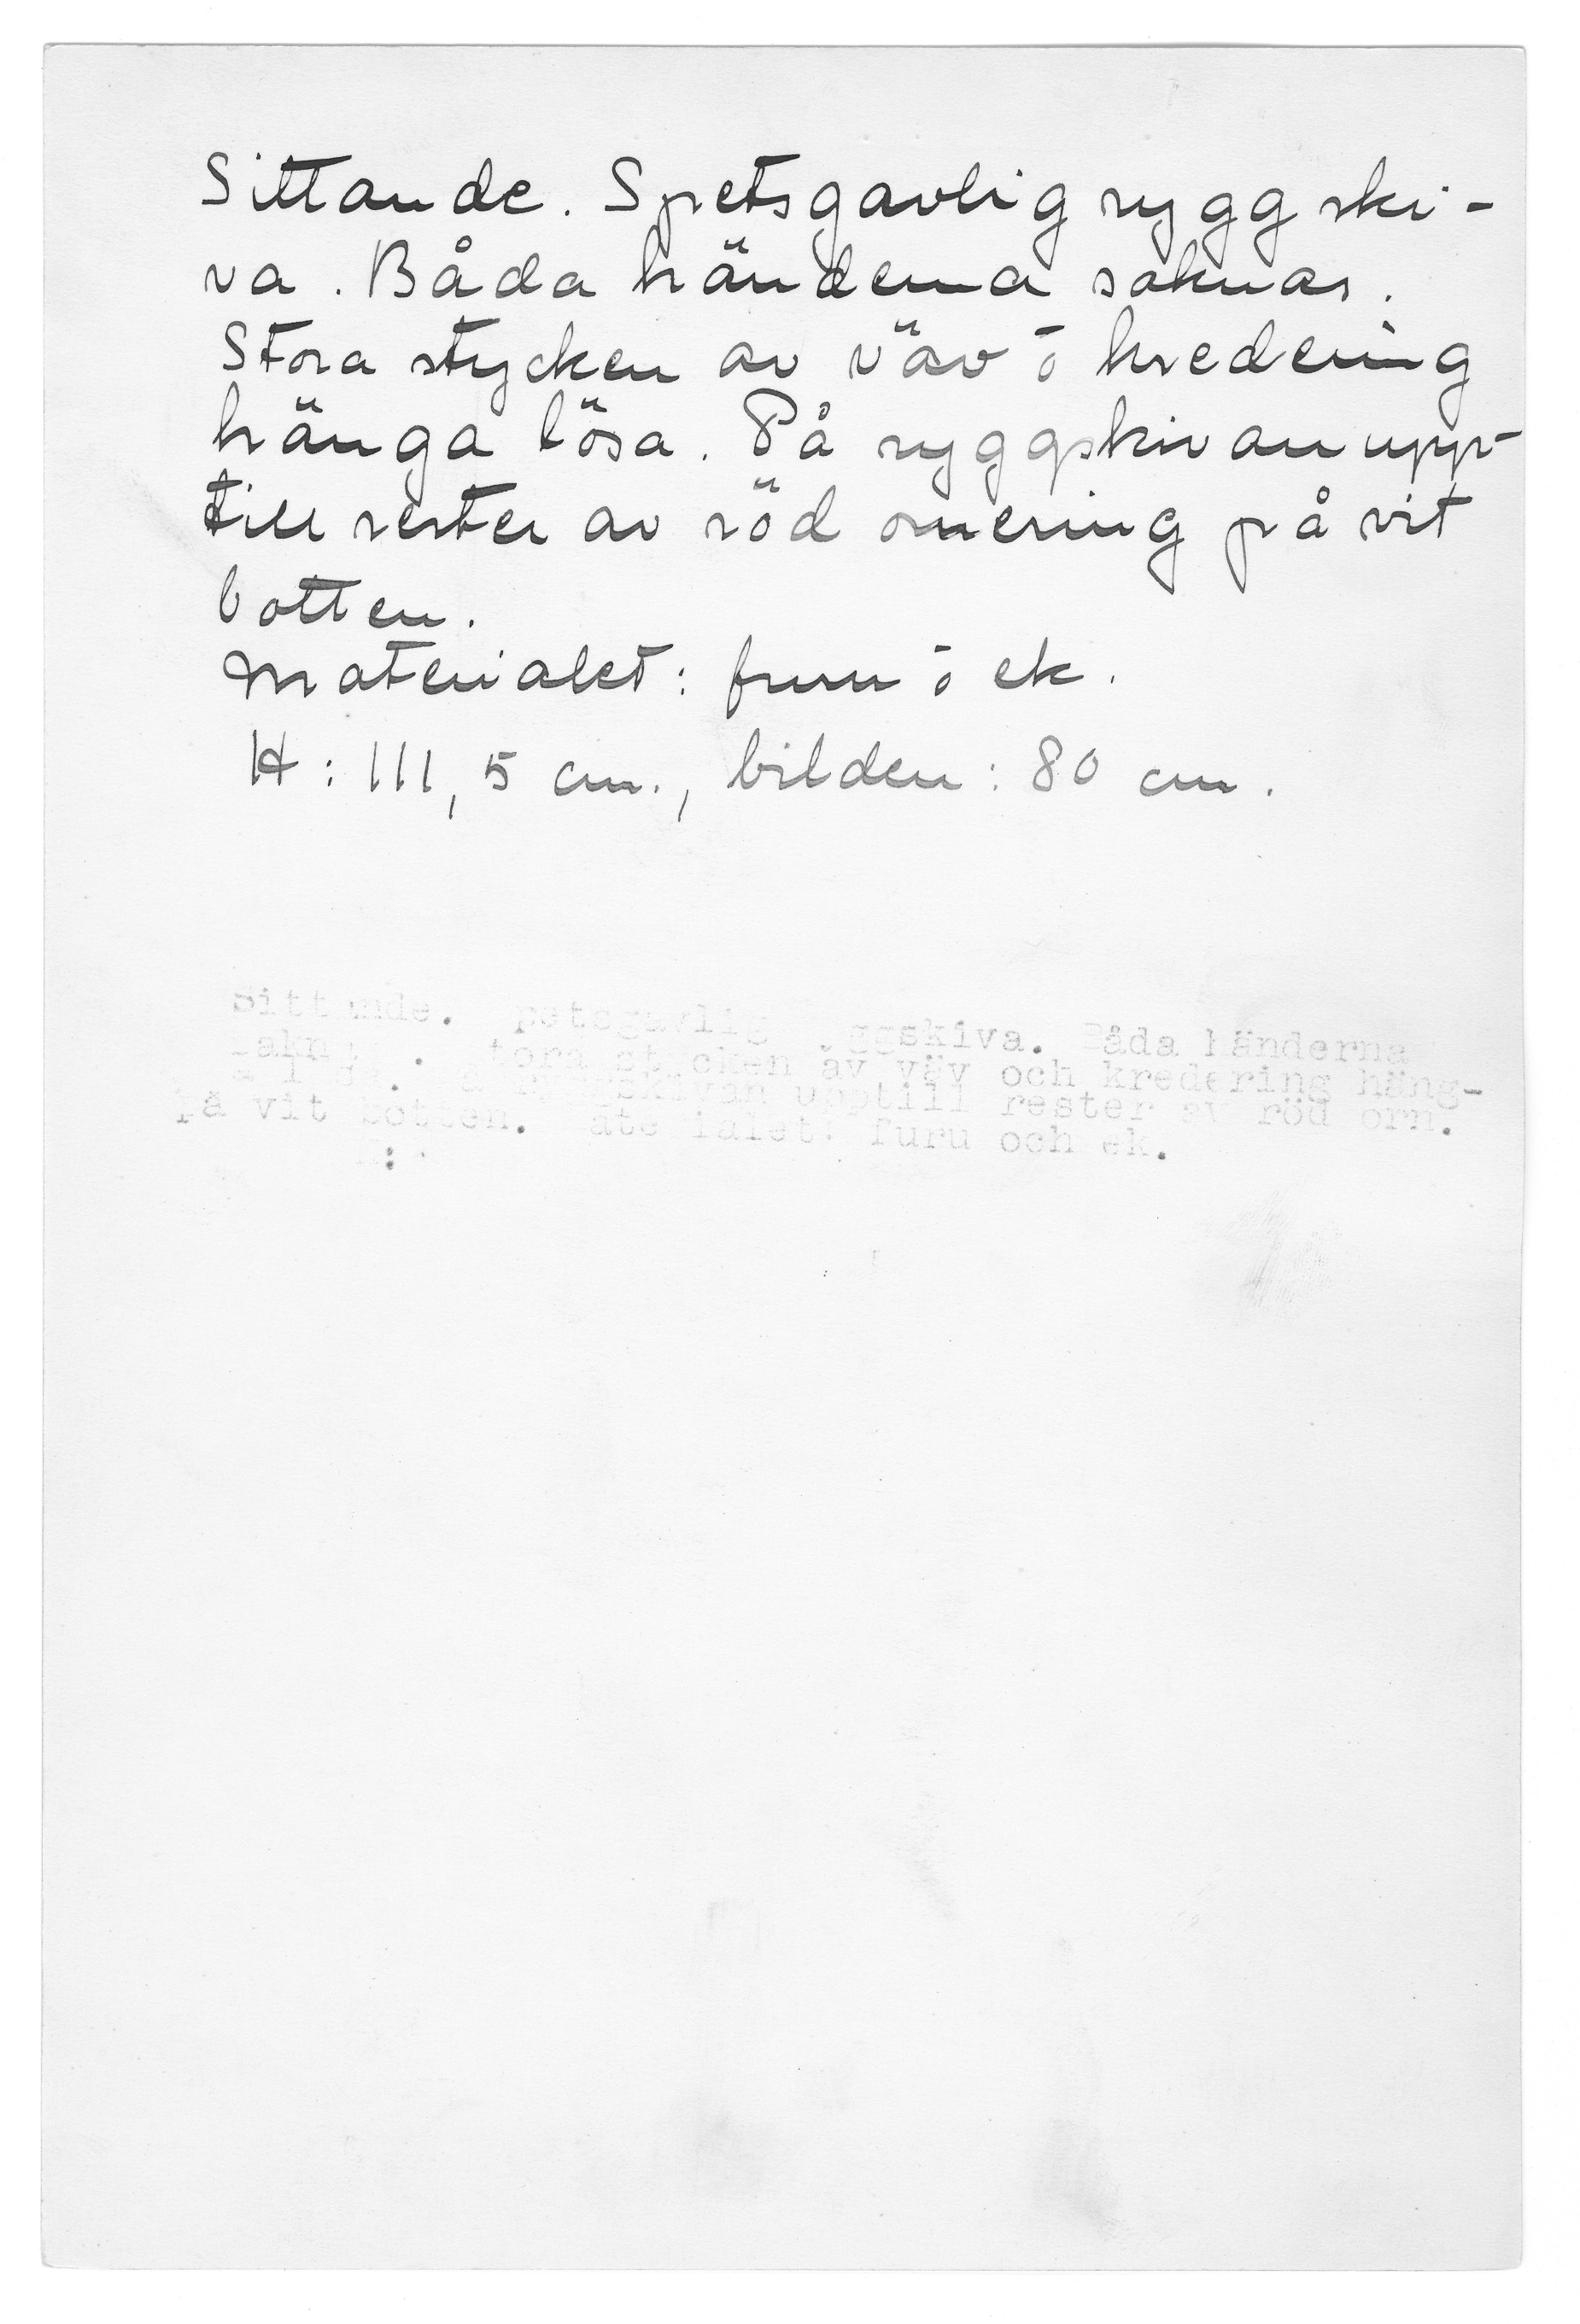 Sittande. Spetsgavlig ryggski-
va. Båda händerna saknas.
Stora stycken av väv o kredering
hänga lösa. På ryggskivan upp-
till rester av röd ornering på vit
botten.
Materialet: furu o ek.
H: 111,5 cm., bilden: 80 cm.
Sittande. petsgavlig ggskiva. Båda händerna
akn . tora st cken av väv och kredering häng-
skivan upptill rester av röd orn.
på vit botten. ate ialet: furu och ek.